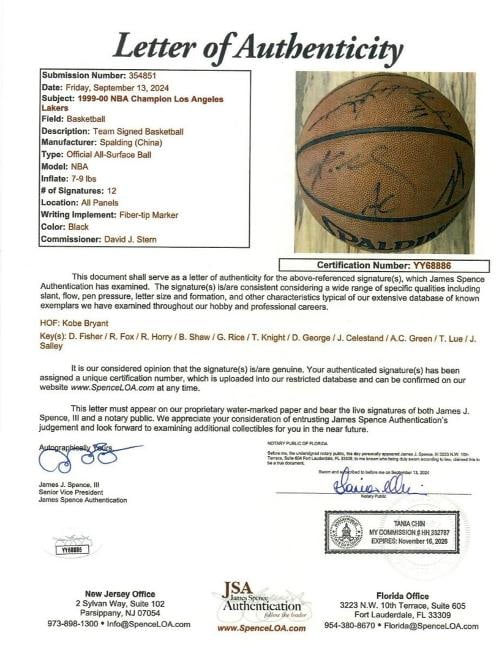 Letter of Authenticity
Submission Number: 354851
Date: Friday, September 13, 2024
Subject: 1999-00 NBA Champion Los Angeles
Lakers
Field: Basketball
Description: Team Signed Basketball
Manufacturer: Spalding (China)
Type: Official All-Surface Ball
Model: NBA
Inflate: 7-9 lbs
# of Signatures: 12
Location: All Panels
Writing Implement: Fiber-tip Marker
Color: Black
Commissioner: David J. Stern
AC
SPALDING
Certification Number: YY68886
This document shall serve as a letter of authenticity for the above-referenced signature(s), which James Spence
Authentication has examined. The signature(s) is/are consistent considering a wide range of specific qualities including
slant, flow, pen pressure, letter size and formation, and other characteristics typical of our extensive database of known
exemplars we have examined throughout our hobby and professional careers.
HOF: Kobe Bryant
Key(s): D. Fisher / R. Fox / R. Horry / B. Shaw / G. Rice / T. Knight / D. George / J. Celestand / A.C. Green / T. Lue / J.
Salley
It is our considered opinion that the signature(s) is/are genuine. Your authenticated signature(s) has been
assigned a unique certification number, which is uploaded into our restricted database and can be confirmed on our
website www.SpenceLOA.com at any time.
This letter must appear on our proprietary water-marked paper and bear the live signatures of both James J.
Spence, III and a notary public. We appreciate your consideration of entrusting James Spence Authentication's
judgement and look forward to examining additional collectibles for you in the near future.
Autographically Yours,
James J. Spence, III
Senior Vice President
James Spence Authentication
NOTARY PUBLIC OF FLORIDA
Before me, the undersigned notary public, this day personally appeared James J. Spence, III 3223 N.W. 10th
Terrace, Suite 604 Fort Lauderdale, FL 33309, to me known who being duly sworn according to law, claimed this to
be a true document.
Sworn and subscribed to before me on September 13, 2024
Notary Public
TANIA CHIN
MY COMMISSION # HH 332787
EXPIRES: November 16, 2026
YY68886
New Jersey Office
2 Sylvan Way, Suite 102
Parsippany, NJ 07054
973-898-1300 • Info@SpenceLOA.com
JSA
James Spence
Authentication
follow the leader
www.SpenceLOA.com
Florida Office
3223 N.W. 10th Terrace, Suite 605
Fort Lauderdale, FL 33309
954-380-8670 • Florida@SpenceLOA.com